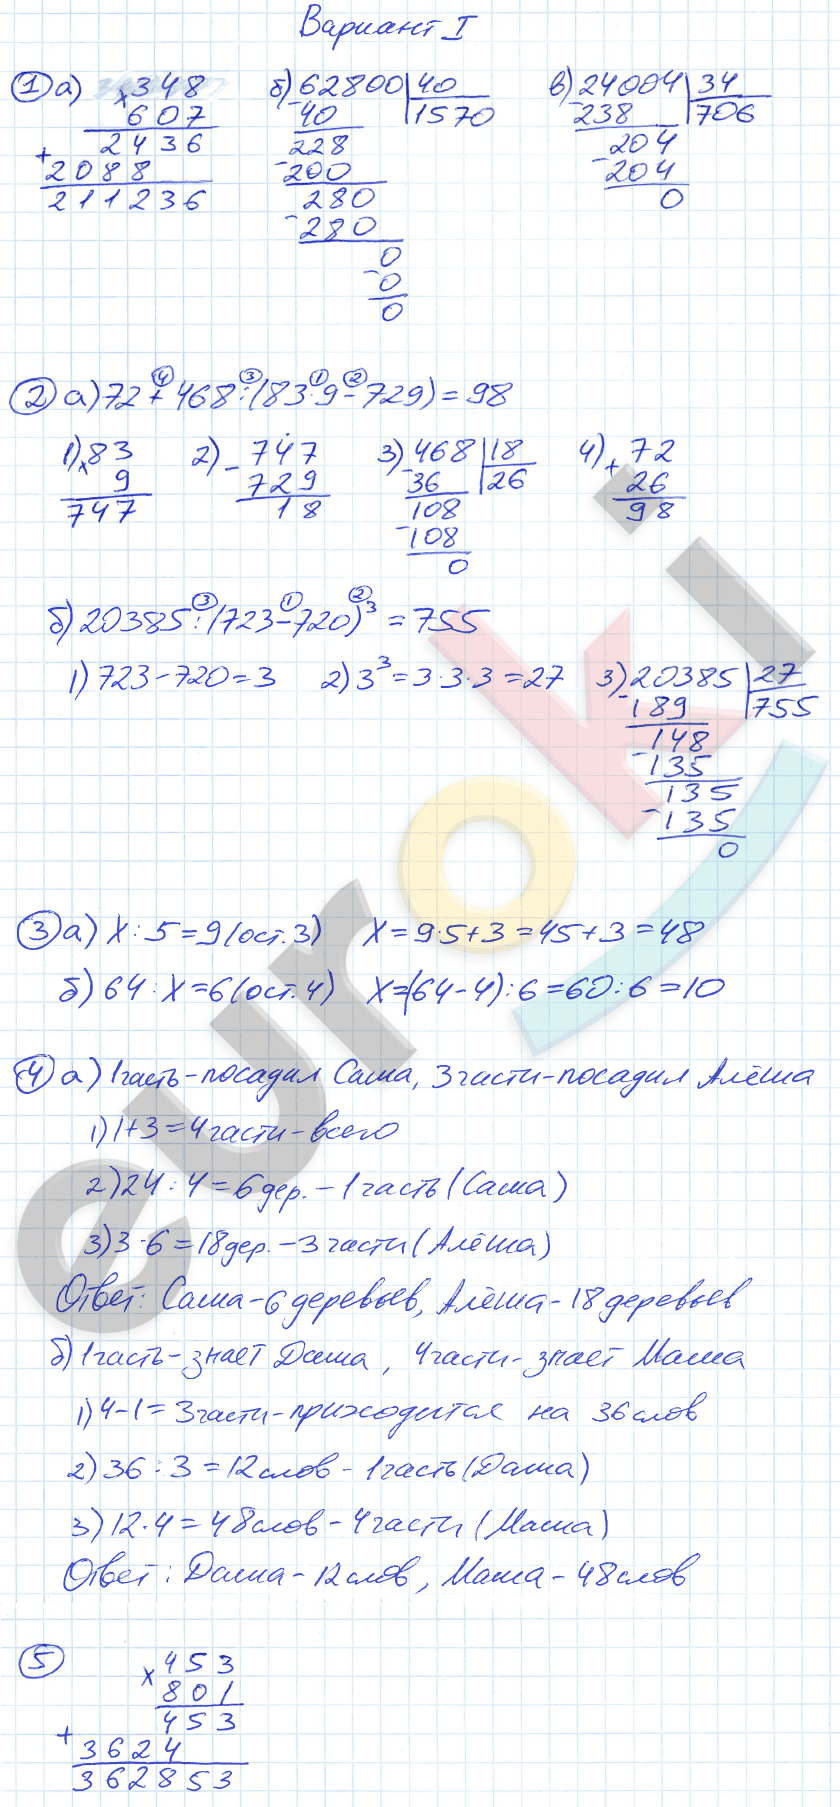 Вариант I
① а) ×348
607
2436
+
2088
211236
б) 62800 | 40
-40 | 1570
228
-200
280
-280
0
-0
0
в) 24004 | 34
-238 | 706
204
-204
0
② а) 72 + 468 : (83 · 9 - 729) = 98
④ ③ ① ②
1) ×83
9
747
2) - 747
729
18
3) -468 | 18
36 | 26
108
-108
0
4) + 72
26
98
б) 20385 : (723 - 720)³ = 755
③ ① ②
1) 723 - 720 = 3 2) 3³ = 3·3·3 = 27 3) 20385 | 27
-189 | 755
148
-135
135
-135
0
③ а) x : 5 = 9 (ост. 3) x = 9·5+3 = 45+3 = 48
б) 64 : x = 6 (ост. 4) x = (64-4) : 6 = 60 : 6 = 10
④ а) 1 часть - посадил Саша, 3 части - посадил Алёша
1) 1+3 = 4 части - всего
2) 24 : 4 = 6 дер. - 1 часть (Саша)
3) 3·6 = 18 дер. - 3 части (Алёша)
Ответ: Саша - 6 деревьев, Алёша - 18 деревьев
б) 1 часть - знает Даша, 4 части - знает Маша
1) 4-1 = 3 части - приходится на 36 слов
2) 36 : 3 = 12 слов - 1 часть (Даша)
3) 12·4 = 48 слов - 4 части (Маша)
Ответ: Даша - 12 слов, Маша - 48 слов
⑤ ×453
801
453
+
3624
362853
euroki